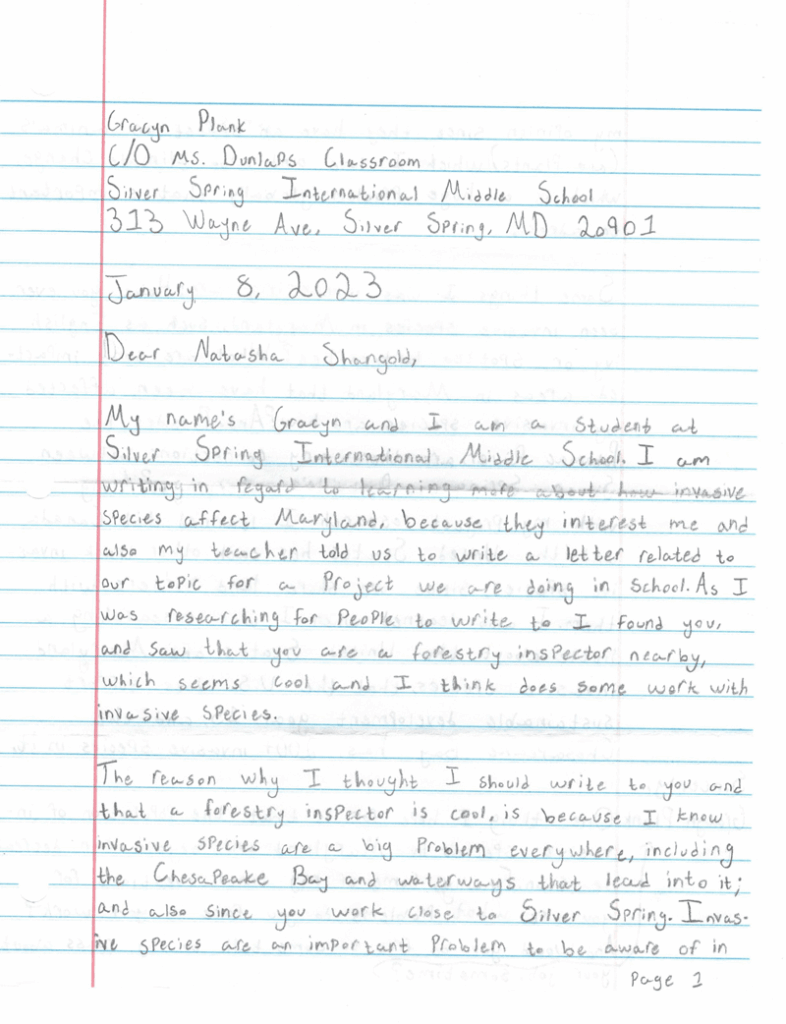 Gracyn Plank
C/O Ms. Dunlaps Classroom
Silver Spring International Middle School
313 Wayne Ave, Silver Spring, MD 20901
January 8, 2023
Dear Natasha Shangold,
My name's Gracyn and I am a student at
Silver Spring International Middle School. I am
writing in regard to learning more about how invasive
species affect Maryland, because they interest me and
also my teacher told us to write a letter related to
our topic for a Project we are doing in school. As I
was researching for People to write to I found you,
and saw that you are a forestry inspector nearby,
which seems cool and I think does some work with
invasive species.
The reason why I thought I should write to you and
that a forestry inspector is cool, is because I know
invasive species are a big Problem everywhere, including
the Chesapeake Bay and waterways that lead into it;
and also since you work close to Silver Spring. Invas-
ive species are an important Problem to be aware of in
Page 1